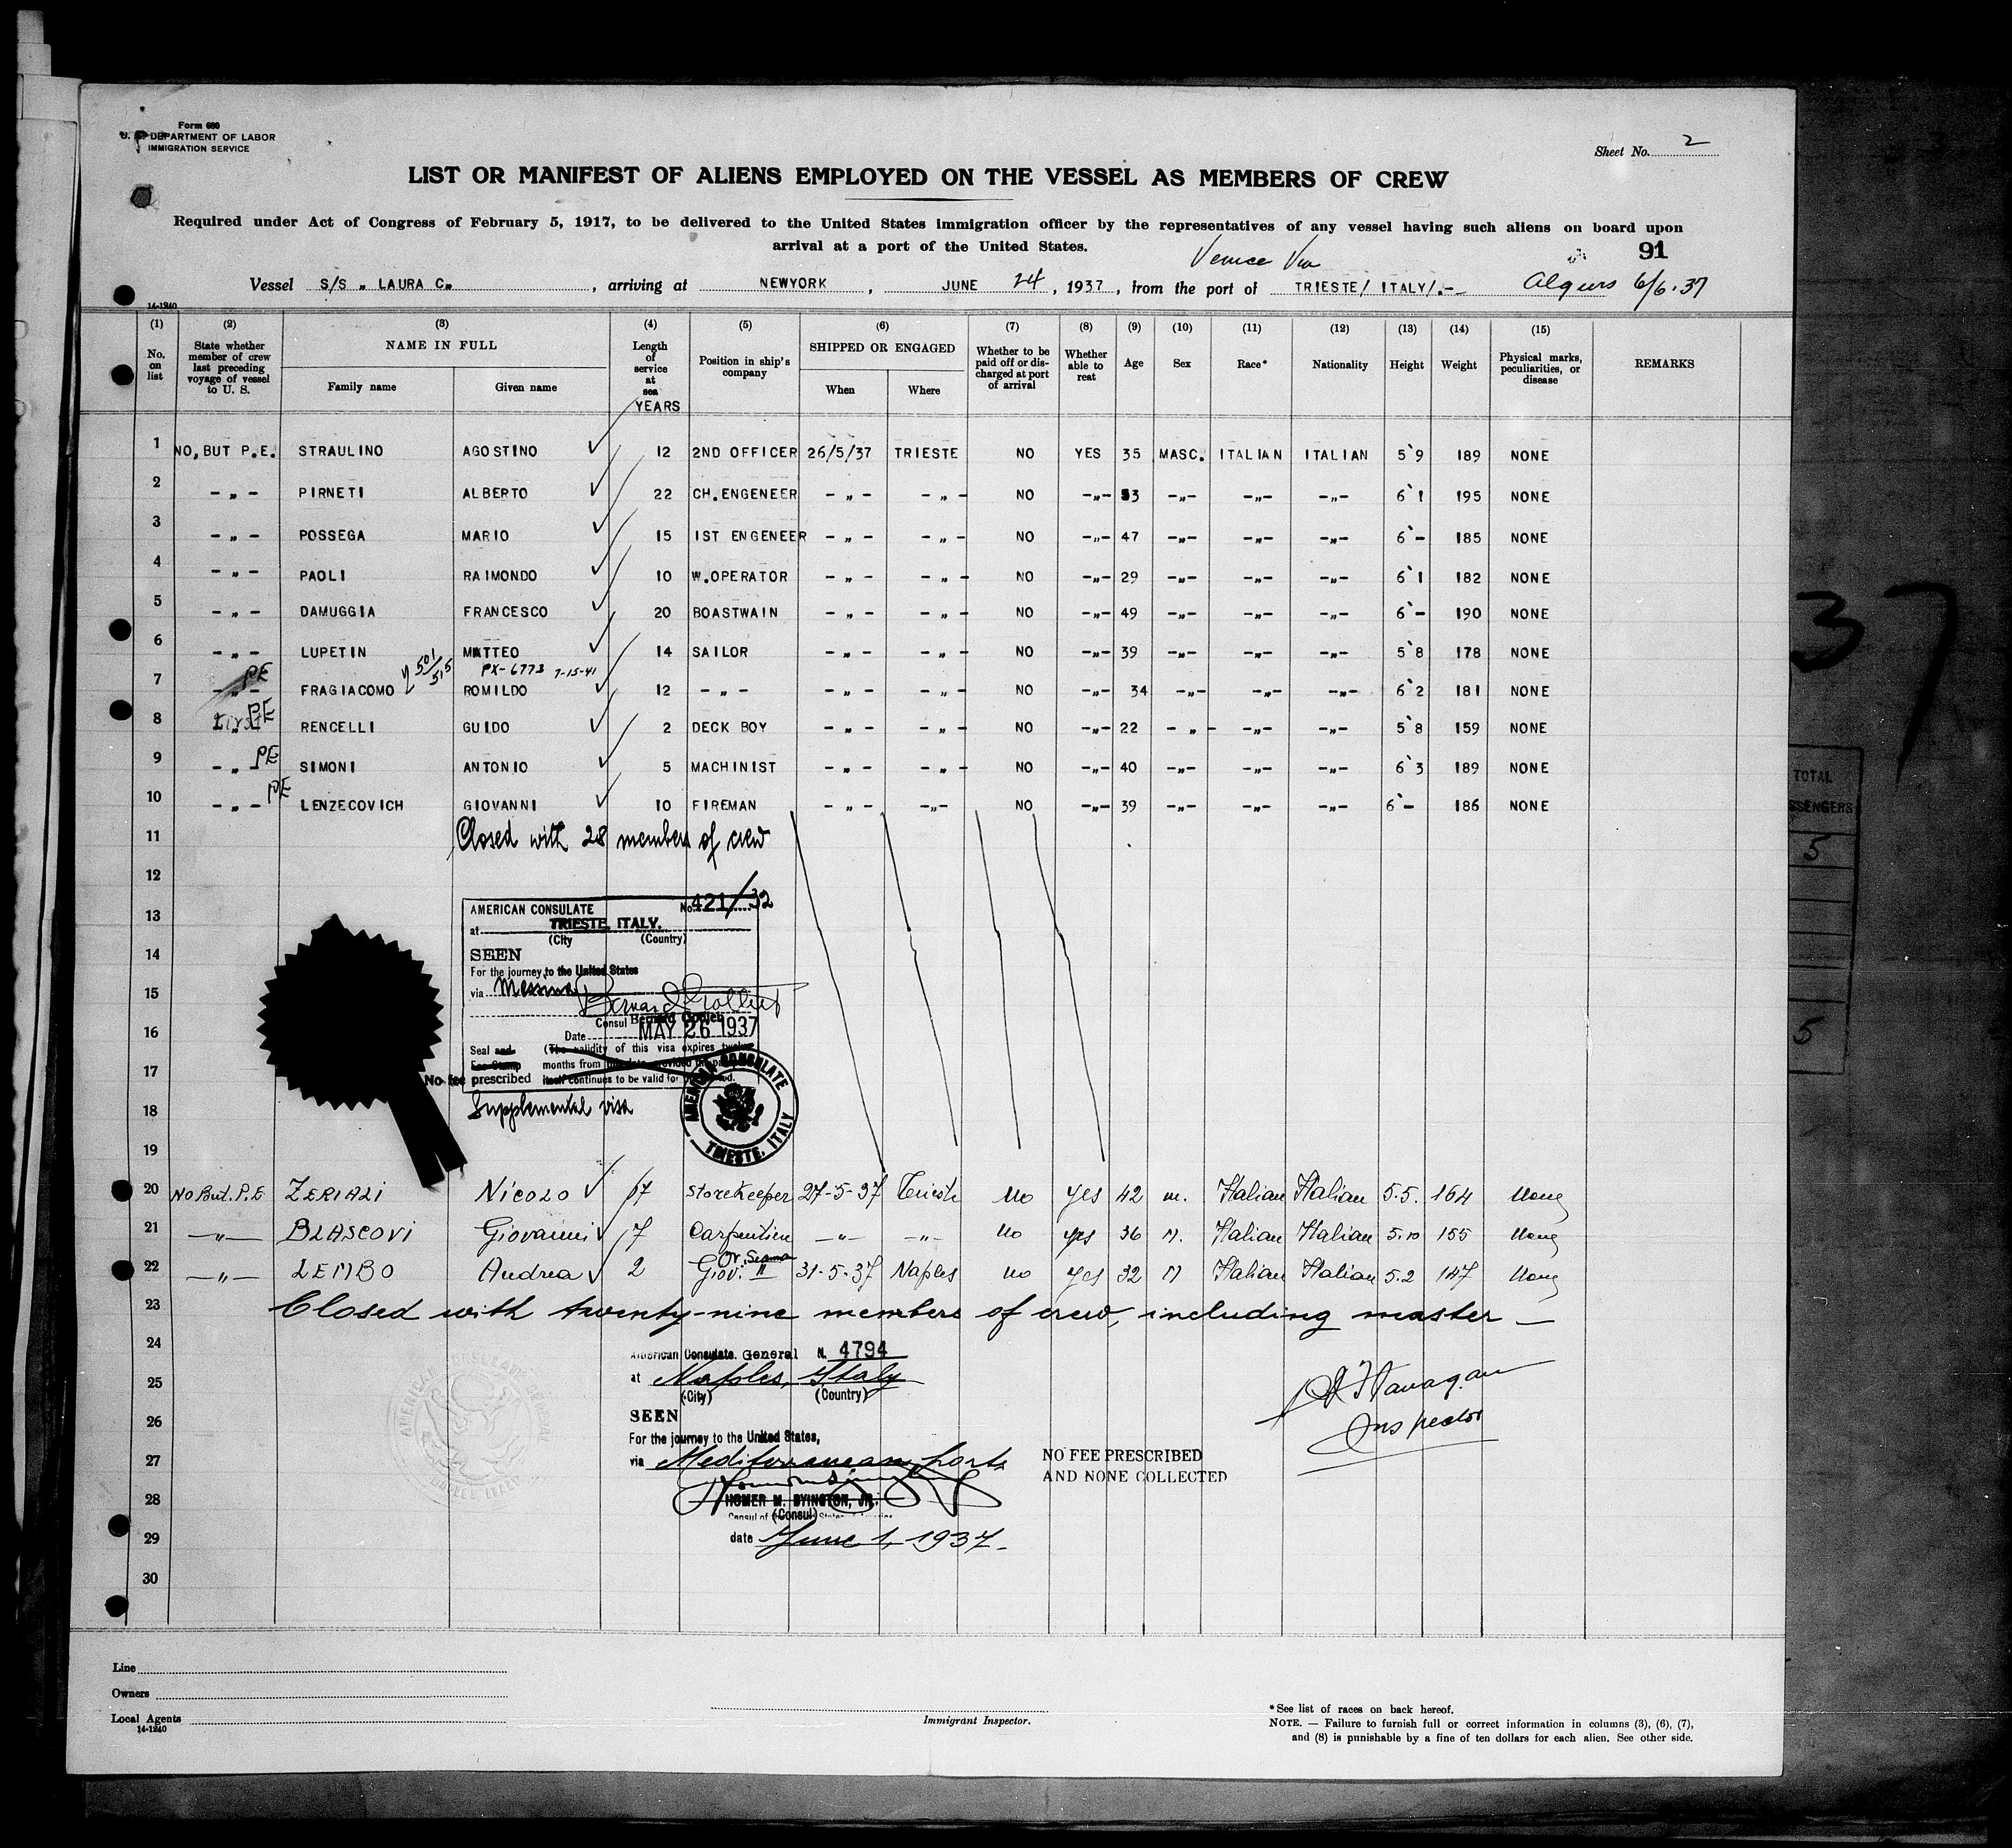 Form 680
U. S. DEPARTMENT OF LABOR
IMMIGRATION SERVICE
Sheet No. 2
LIST OR MANIFEST OF ALIENS EMPLOYED ON THE VESSEL AS MEMBERS OF CREW
Required under Act of Congress of February 5, 1917, to be delivered to the United States immigration officer by the representatives of any vessel having such aliens on board upon
arrival at a port of the United States.
91
Venice Via
Vessel S/S „ LAURA C„ , arriving at NEWYORK , JUNE 24 , 1937 , from the port of TRIESTE/ ITALY/.-- 6/6.37
14-1240
(1) (2) (3) (4) (5) (6) (7) (8) (9) (10) (11) (12) (13) (14) (15)
No. on list
State whether member of crew last preceding voyage of vessel to U. S.
NAME IN FULL
Family name
Given name
Length of service at sea
YEARS
Position in ship's company
SHIPPED OR ENGAGED
When
Where
Whether to be paid off or discharged at port of arrival
Whether able to read
Age
Sex
Race*
Nationality
Height
Weight
Physical marks, peculiarities, or disease
REMARKS
1 NO, BUT P.E. STRAULINO AGOSTINO ✓ 12 2ND OFFICER 26/5/37 TRIESTE NO YES 35 MASC. ITALIAN ITALIAN 5`9 189 NONE
2 - „ - PIRNETI ALBERTO ✓ 22 CH.ENGENEER - „ - - „ - NO -„- 53 -„- -„- -„- 6`1 195 NONE
3 - „ - POSSEGA MARIO ✓ 15 1ST ENGENEER - „ - - „ - NO -„- 47 -„- -„- -„- 6`- 185 NONE
4 - „ - PAOLI RAIMONDO ✓ 10 W.OPERATOR - „ - - „ - NO -„- 29 -„- -„- -„- 6`1 182 NONE
5 - „ - DAMUGGIA FRANCESCO ✓ 20 BOASTWAIN - „ - - „ - NO -„- 49 -„- -„- -„- 6`- 190 NONE
6 - „ - LUPETIN MATTEO ✓ 14 SAILOR - „ - - „ - NO -„- 39 -„- -„- -„- 5`8 178 NONE
501/515 PX-6773 7-15-41
7 - „ - PE FRAGIACOMO ROMILDO ✓ 12 - „ - - „ - - „ - NO -„- 34 -„- -„- -„- 6`2 181 NONE
8 PE RENCELLI GUIDO ✓ 2 DECK BOY - „ - - „ - NO -„- 22 - „ - -„- -„- 5`8 159 NONE
9 - „ PE SIMONI ANTONIO ✓ 5 MACHINIST - „ - - „ - NO -„- 40 -„- -„- -„- 6`3 189 NONE
10 - „ - PE LENZECOVICH GIOVANNI ✓ 10 FIREMAN - „ - -„- NO -„- 39 -„- -„- -„- 6`- 186 NONE
11 Closed with 28 members of crew
12
13
14
15
16
17
18
19
AMERICAN CONSULATE No. 421/32
at TRIESTE, ITALY.
(City (Country)
SEEN
For the journey to the United States
via Messina
Consul Bernard Gotlieb
Date MAY 26 1937
Seal and Fee Stamp (The validity of this visa expires twelve
months from this date provided the
No fee prescribed itself continues to be valid for
Supplemental visa
AMERICAN CONSULATE
TRIESTE, ITALY
20 No But. P.E ZERIALI Nicolo ✓ 17 Storekeeper 27-5-37 Trieste No yes 42 m. Italian Italian 5.5. 164 None
21 -„- BLASCOVI Giovanni ✓ 17 Carpentien -„- -„- No yes 36 M. Italian Italian 5.10 155 None
22 -„- LEMBO Andrea ✓ 2 Giov. II 31-5-37 Naples No yes 32 M Italian Italian 5.2 147 None
23 Closed with twenty-nine members of crew, including master —
24
25
26
27
28
29
30
American Consulate General N. 4794
at Naples, Italy
(City) (Country)
SEEN
For the journey to the United States,
via Mediterranean ports
HOMER M. BYINGTON, JR.
(Consul)
date June 1, 1937.
NO FEE PRESCRIBED
AND NONE COLLECTED
Flanagan
Inspector
Line
Owners
Local Agents
14-1240
Immigrant Inspector.
*See list of races on back hereof.
NOTE. — Failure to furnish full or correct information in columns (3), (6), (7),
and (8) is punishable by a fine of ten dollars for each alien. See other side.
37
TOTAL
5
5